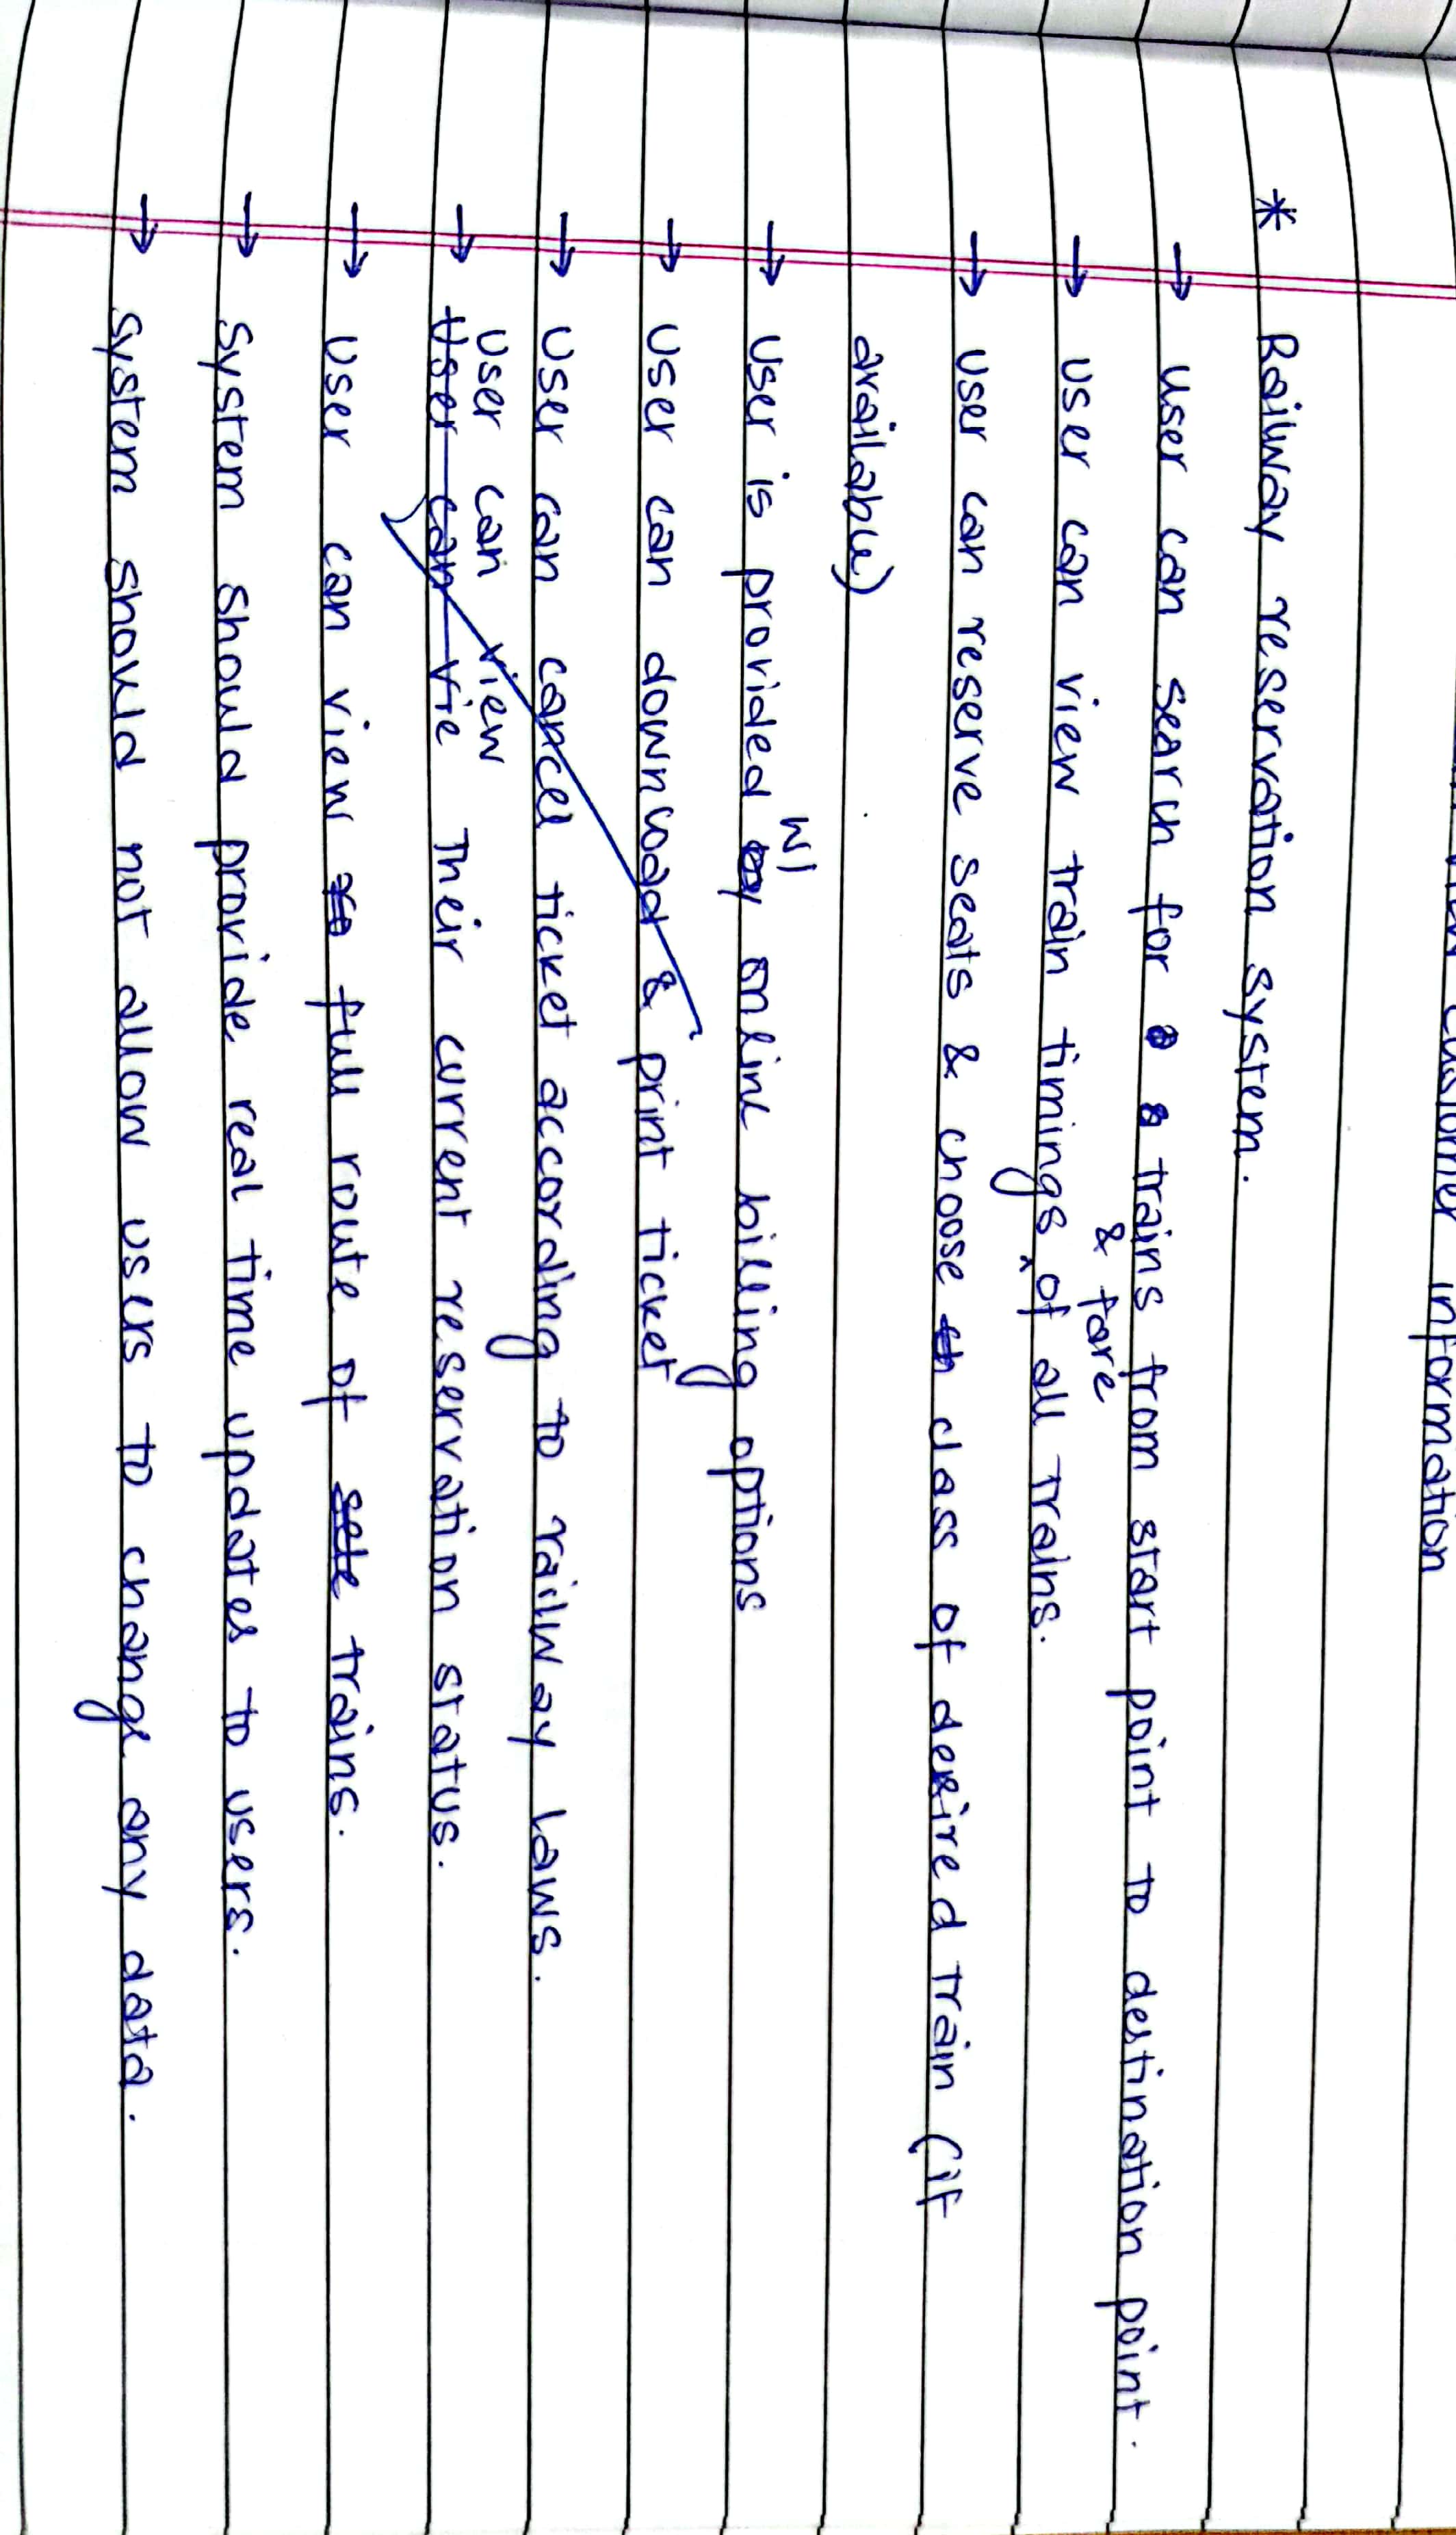 customer information
* Railway reservation system.
→ User can search for trains from start point to destination point.
& fare
→ User can view train timings ^ of all trains.
→ User can reserve seats & choose class of desired train (if
available)
w/
→ User is provided online billing options
→ User can download & print ticket
→ User can cancel ticket according to railway laws.
User can view
→ User can vie Their current reservation status.
→ User can view full route of trains.
→ System should provide real time updates to users.
→ System should not allow users to change any data.